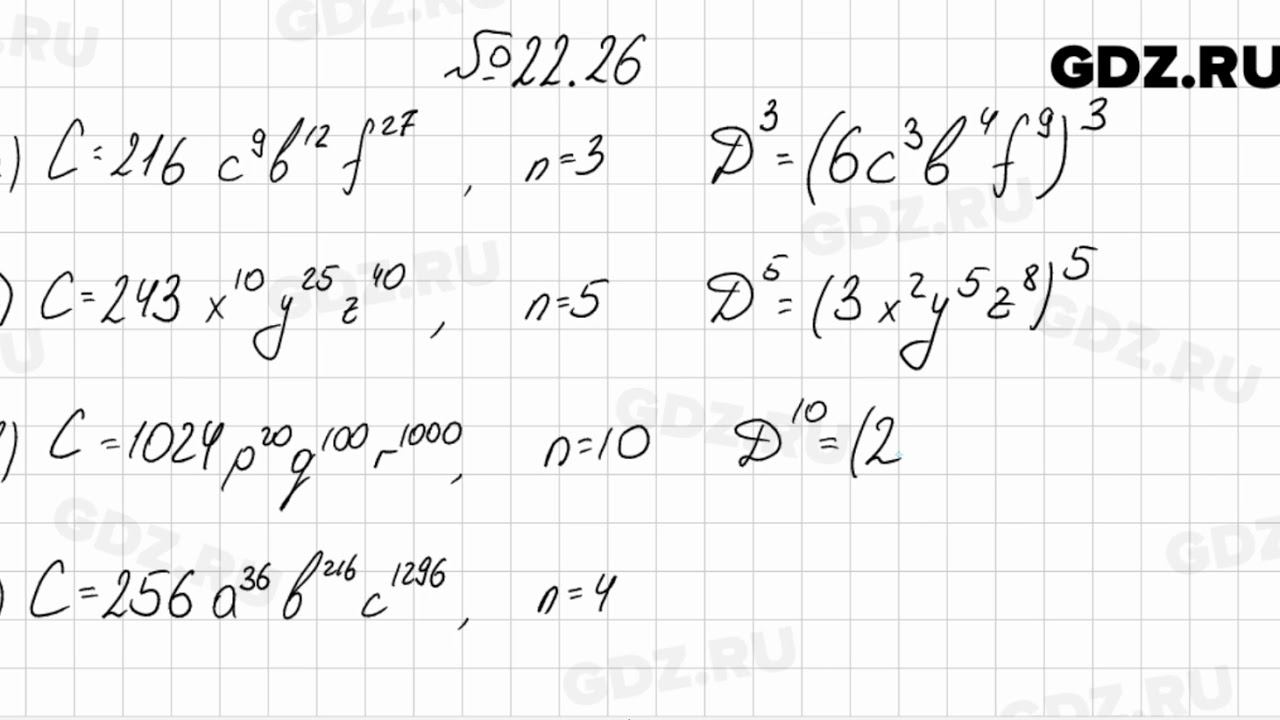 №22.26
GDZ.RU
) C=216 c⁹b¹²f²⁷, n=3 D³=(6c³b⁴f⁹)³
) C=243 x¹⁰y²⁵z⁴⁰, n=5 D⁵=(3x²y⁵z⁸)⁵
) C=1024p²⁰q¹⁰⁰r¹⁰⁰⁰, n=10 D¹⁰=(2
) C=256a³⁶b²¹⁶c¹²⁹⁶, n=4